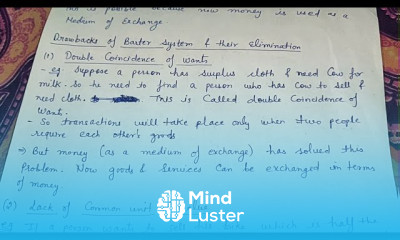 this is possible because now money is used as a
Medium of Exchange.
Drawbacks of Barter System & their Elimination
(1) Double Coincidence of Wants
- eg Suppose a person has surplus cloth & need Cow for
milk. So he need to find a person who has Cow to sell &
need cloth. This is Called double Coincidence of
Want.
- So transactions will take place only when two people
require each other's goods
⇒ But money (as a medium of exchange) has solved this
Problem. Now goods & Services Can be exchanged in terms
of money
(2) Lack of Common unit
Mind
Luster
eg If a person wants which is half the